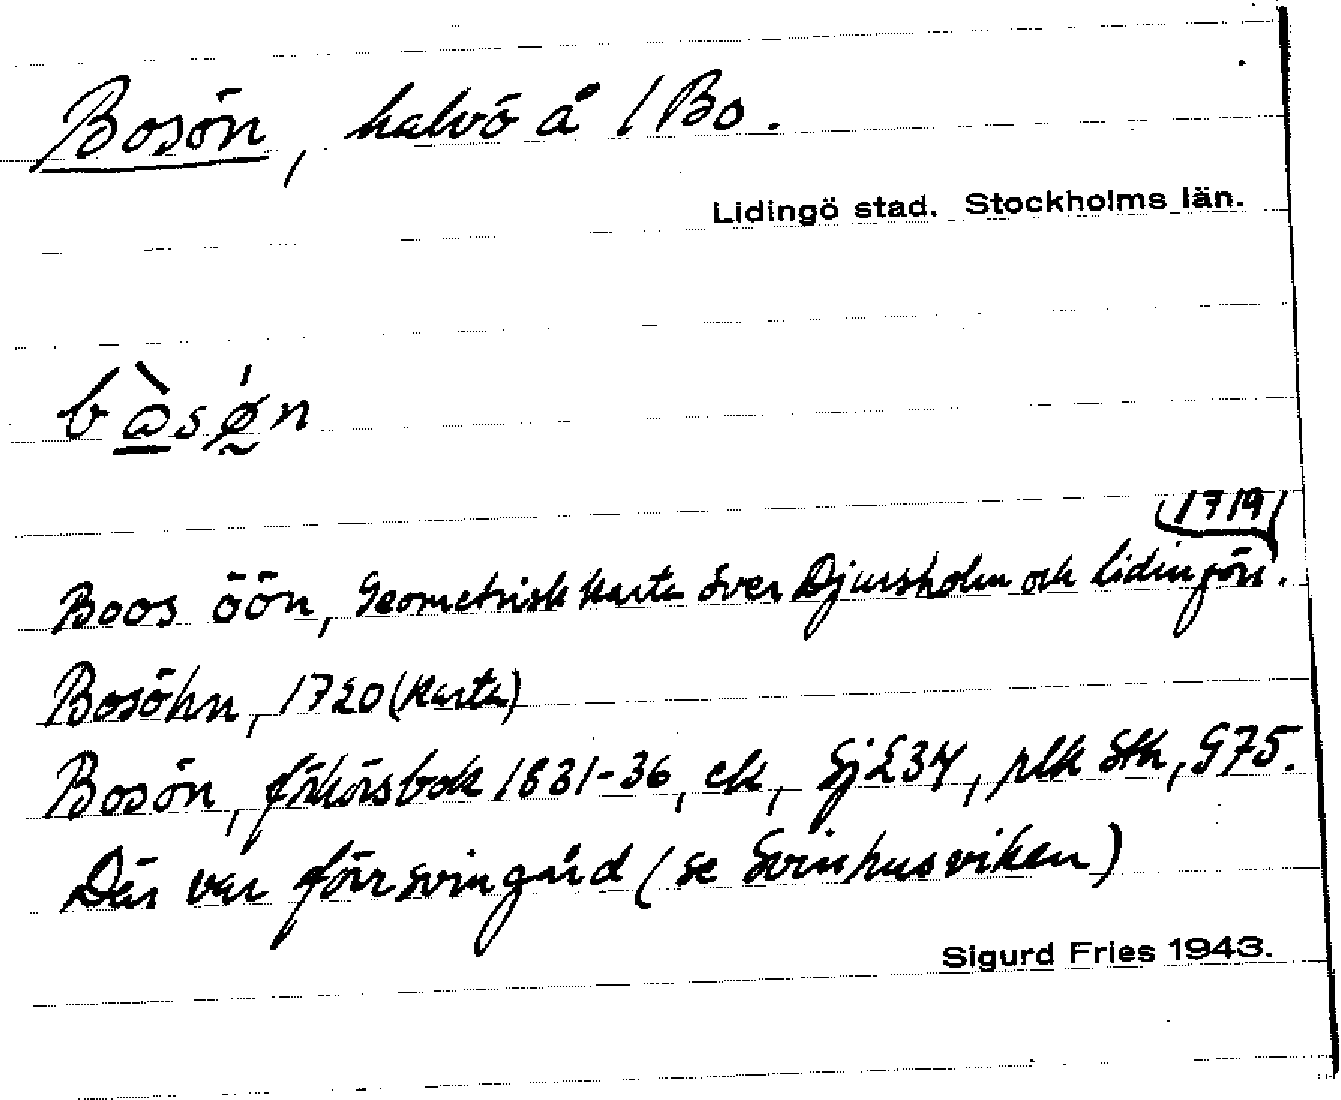 Bosön, halvö å 1 Bo.
Lidingö stad. Stockholms län.
bòsǿn
1719
Boos öön, Geometrisk karta över Djursholm och Lidingön.
Bosöhn, 1720 (karta)
Bosön, förhörsbok 1831-36, ek, Sj234, plk Sth, S75.
Där var förr svingård (se Svinhusviken)
Sigurd Fries 1943.